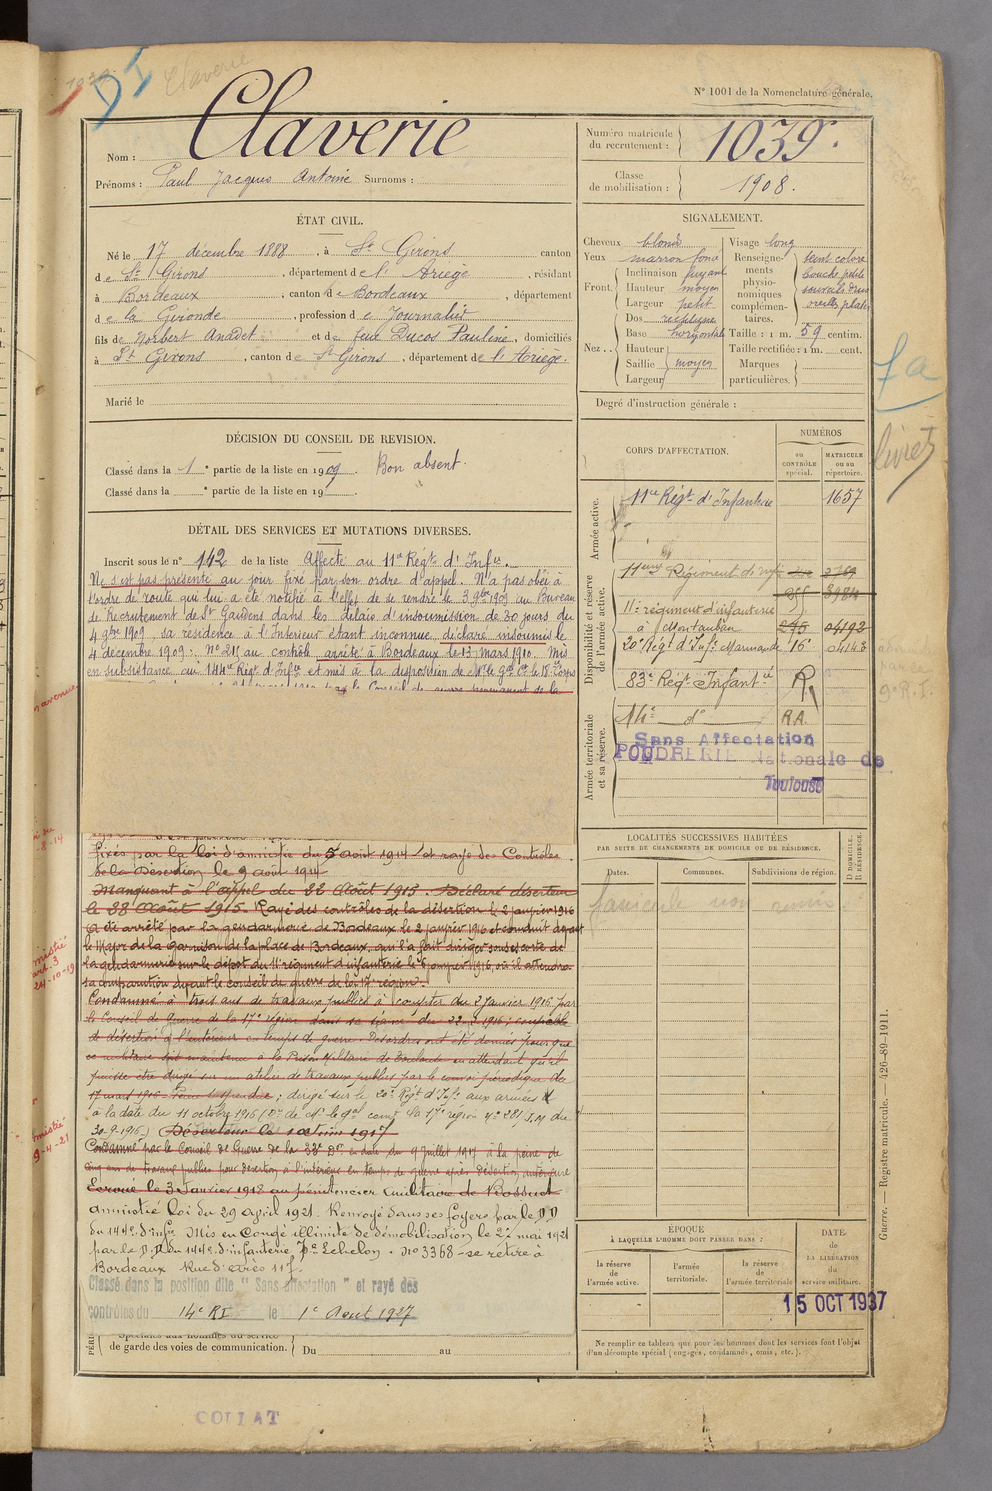 N° 1001 de la Nomenclature générale.
1039
DI
Claverie
Nom : Claverie
Prénoms : Paul Jacques Antoine Surnoms :
Numéro matricule du recrutement : 1039.
Classe de mobilisation : 1908.
ÉTAT CIVIL.
Né le 17 décembre 1888, à St Girons canton
de St Girons, département de l'Ariège, résidant
à Bordeaux, canton de Bordeaux, département
de la Gironde, profession de Journalier
fils de Norbert Anadet et de feue Ducos Pauline, domiciliés
à St Girons, canton de St Girons, département de l'Ariège.
Marié le
SIGNALEMENT.
Cheveux blonds
Yeux marron foncé
Front. Inclinaison fuyant
Hauteur moyen
Largeur petit
Nez. Dos rectiligne
Base horizontale
Hauteur
Saillie moyen
Largeur
Visage long
Renseignements physionomiques complémentaires. teint coloré
bouche petite
sourcils drus
oreilles plates
Taille : 1 m. 59 centim.
Taille rectifiée : 1 m. cent.
Marques particulières.
Degré d'instruction générale :
DÉCISION DU CONSEIL DE REVISION.
Classé dans la 1e partie de la liste en 1909. Bon absent.
Classé dans la e partie de la liste en 19
DÉTAIL DES SERVICES ET MUTATIONS DIVERSES.
Inscrit sous le n° 142 de la liste Affecté au 11e Régt d'Infie.
Ne s'est pas présenté au jour fixé par son ordre d'appel. N'a pas obéi à
l'ordre de route qui lui a été notifié à l'effet de se rendre le 3 9bre 1909 au Bureau
de Recrutement de St Gaudens dans les délais d'insoumission de 30 jours du
4 9bre 1909, sa résidence à l'Intérieur étant inconnue, déclaré insoumis le
4 décembre 1909 : N° 211 au contrôle, arrêté à Bordeaux le 13 mars 1910. Mis
en subsistance au 144e Régt d'Infie et mis à la disposition de Mr le Gal Ct le 18e Corps
par le Conseil de guerre permanent de la
fixés par la loi d'amnistie du 5 août 1914 et rayé des Contrôles
de la Désertion le 9 août 1914
Manquant à l'appel du 22 Août 1915. Déclaré déserteur
le 28 Août 1915. Rayé des contrôles de la désertion le 2 janvier 1916
A été arrêté par la gendarmerie de Bordeaux le 2 janvier 1916 et conduit devant
le Major de la Garnison de la place de Bordeaux, qui l'a fait diriger sous escorte de
la gendarmerie sur le dépôt du 11e régiment d'infanterie le 6 janvier 1916, où il attendra
sa comparution devant le conseil de guerre de la 17e région.
Condamné à trois ans de travaux publics à compter du 2 Janvier 1916 par
le Conseil de Guerre de la 17e région dans sa séance du 22-2-1916; coupable
de désertion à l'intérieur en temps de guerre. Des ordres ont été donnés pour que
ce militaire soit maintenu à la Prison Militaire de Toulouse en attendant qu'il
puisse être dirigé sur un atelier de travaux publics par le convoi périodique du
17 mars 1916 - Peine suspendue; dirigé sur le 20e Régt d'Infie aux armées
à la date du 11 octobre 1916 (Dn de Mr le Gal comt la 17e région n° 281 J.M du
30-9-1916) Déserteur le 1917
Condamné par le Conseil de Guerre de la 33e Dn en date du 9 Juillet 1917 à la peine de
cinq ans de travaux publics pour désertion à l'intérieur en temps de guerre après désertion antérieure
Ecroué le 3 Janvier 1918 au pénitencier militaire de Bossuet
amnistié loi du 29 april 1921. Renvoyé dans ses foyers par le D.D
du 144e d'Infie Mis en Congé illimité de démobilisation le 27 mai 1921
par le D.D du 144e d'infanterie, échelon. N° 3368 - se retire à
Bordeaux Rue 117.
Classé dans la position dite " Sans affectation " et rayé des
contrôles du 14e RI le 1er Aout 1927
de garde des voies de communication. Du au
CORPS D'AFFECTATION.
NUMÉROS
au CONTRÔLE spécial.
MATRICULE ou au répertoire.
Armée active.
11e Régt d'Infanterie 1657
Disponibilité et réserve de l'armée active.
11eme Régiment d'infie
11e régiment d'infanterie
à Montauban
20e Régt d'Infie Marmande
83e Régt Infantie R.
Armée territoriale et sa réserve.
14e do R.A.
Sans Affectation
POUDRERIE Nationale de
Toulouse
fa
livret
LOCALITÉS SUCCESSIVES HABITÉES
PAR SUITE DE CHANGEMENTS DE DOMICILE OU DE RÉSIDENCE.
Dates. Communes. Subdivisions de région. D DOMICILE. R RÉSIDENCE.
fascicule non remis
ÉPOQUE
À LAQUELLE L'HOMME DOIT PASSER DANS :
la réserve de l'armée active.
l'armée territoriale.
la réserve de l'armée territoriale
DATE de la LIBÉRATION du service militaire.
15 OCT 1937
Ne remplir ce tableau que pour les hommes dont les services font l'objet
d'un décompte spécial (engagés, condamnés, omis, etc.).
Guerre. — Registre matricule. — 426-89-1911.
COLLAT